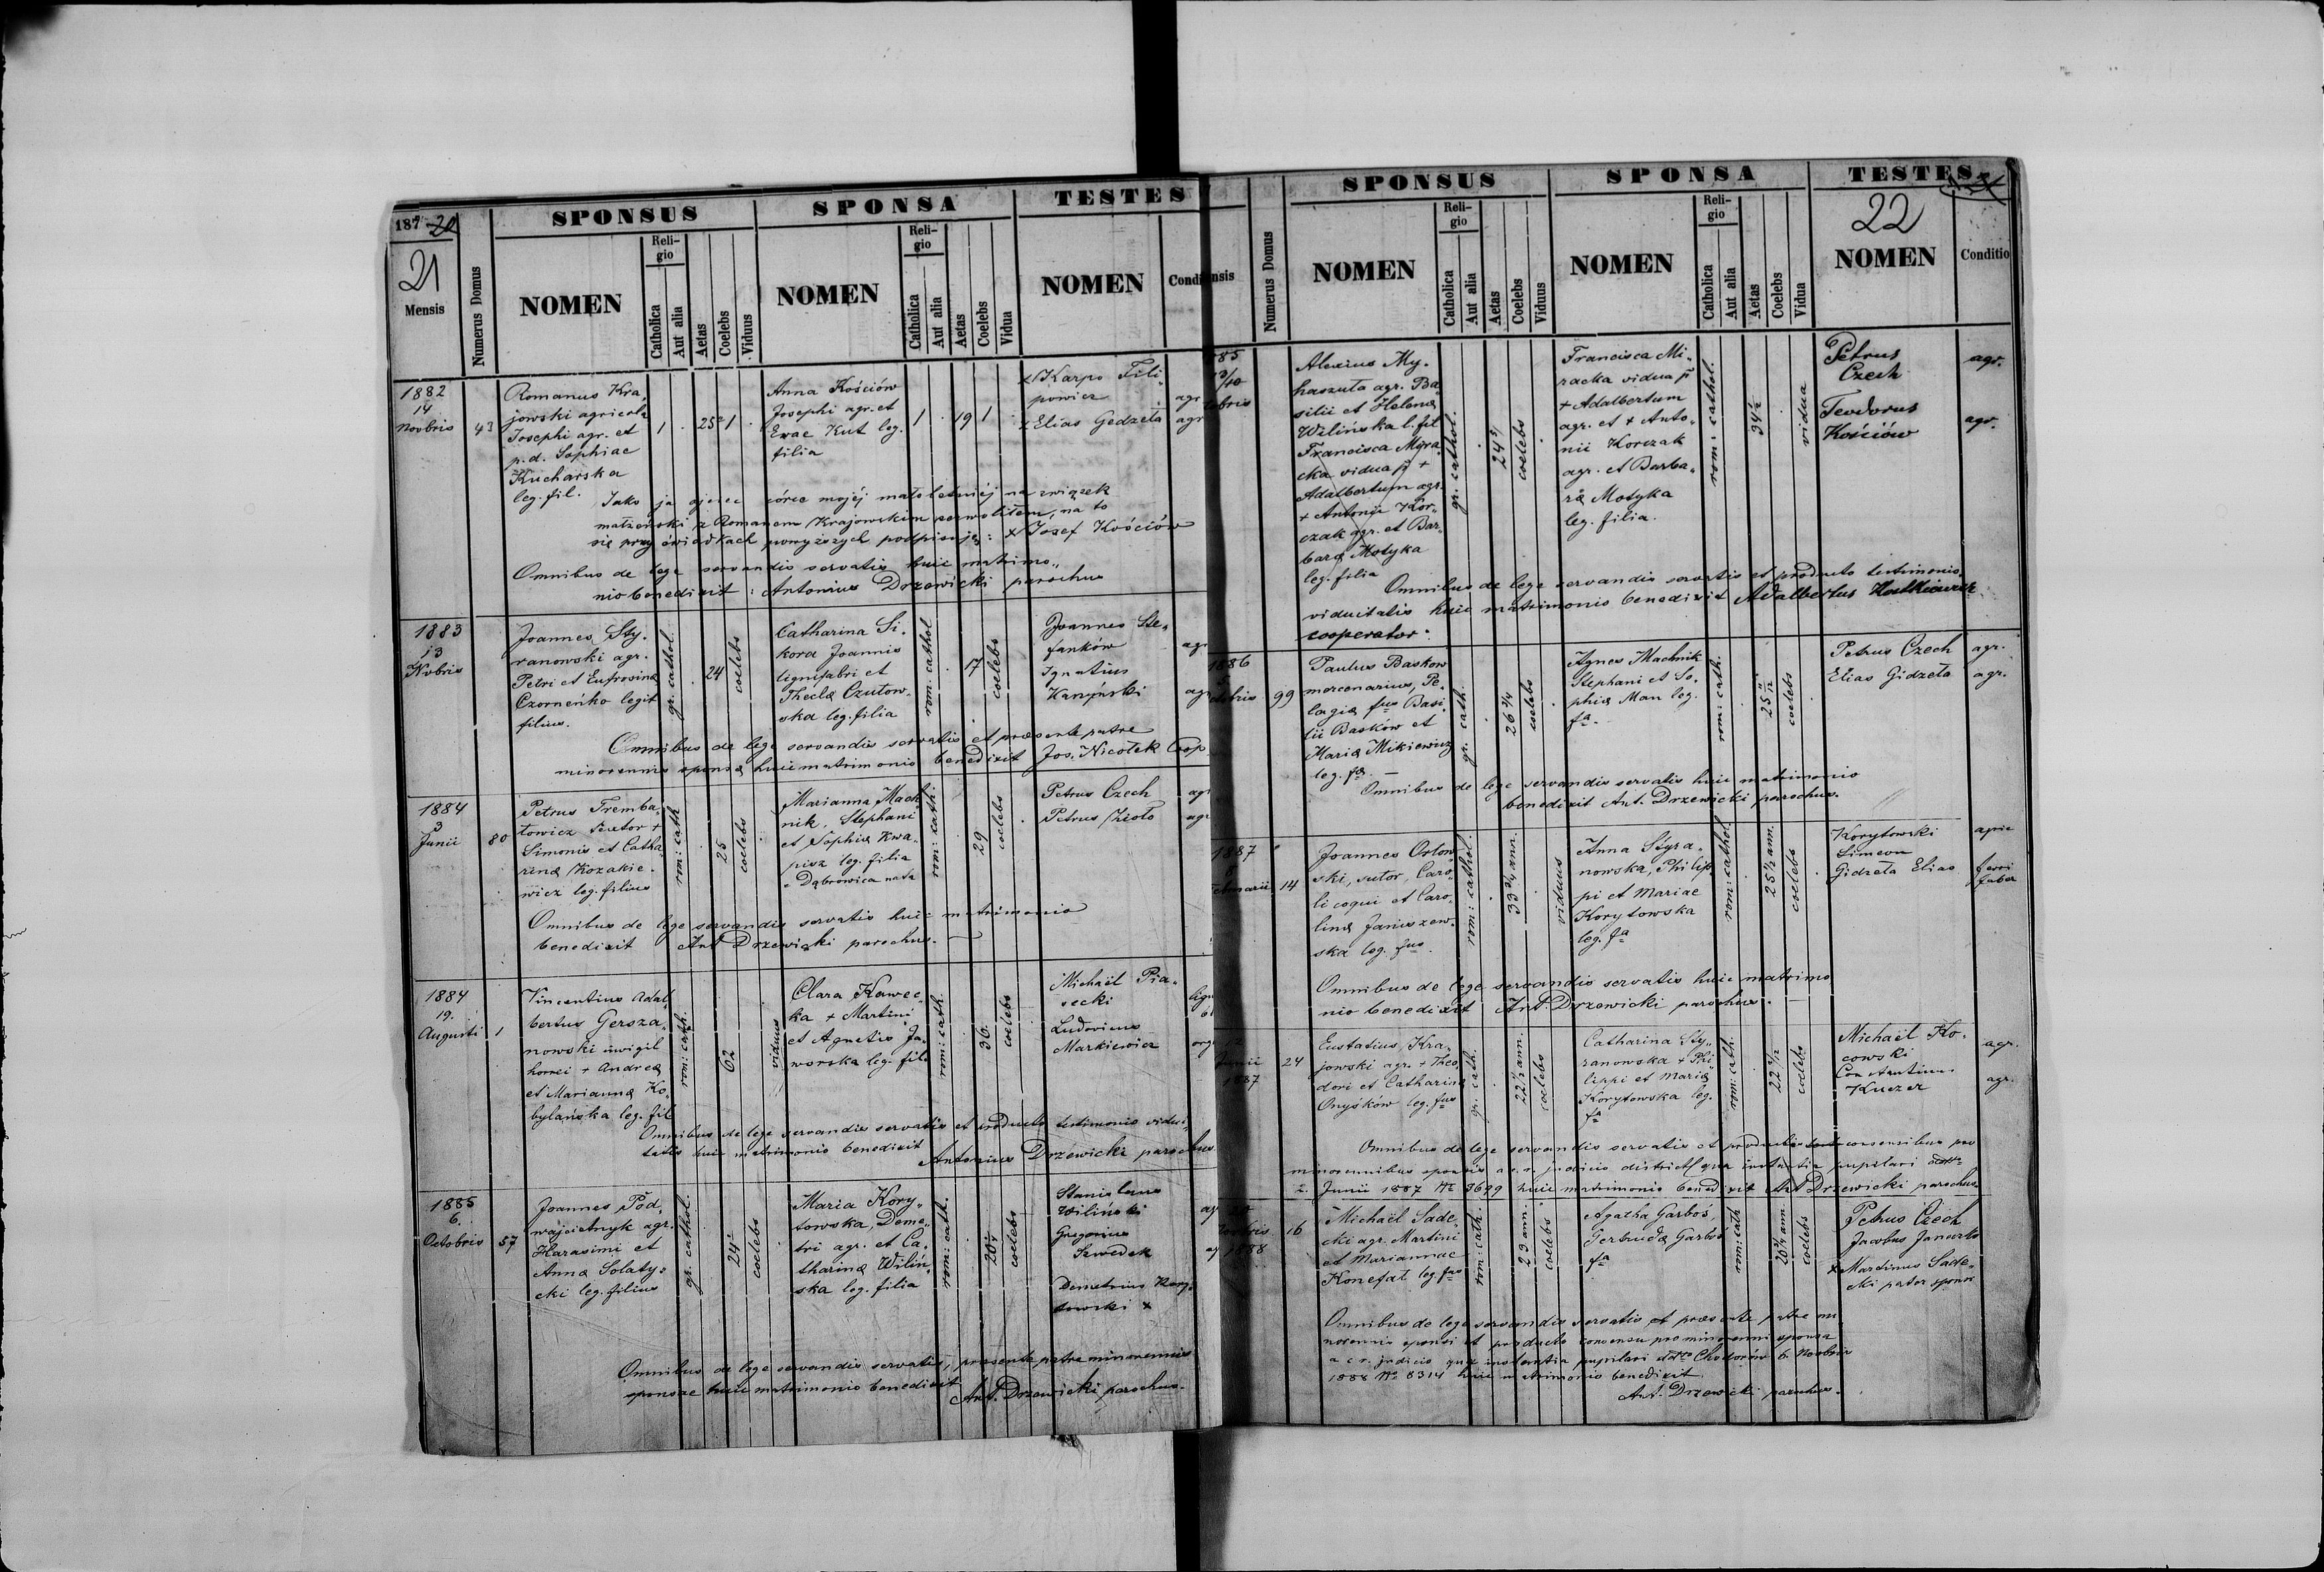 187
20
21
Mensis
Numerus Domus
SPONSUS
NOMEN
Reli-
gio
Catholica
Aut alia
Aetas
Coelebs
Viduus
SPONSA
NOMEN
Reli-
gio
Catholica
Aut alia
Aetas
Coelebs
Vidua
TESTES
NOMEN
Condi
1882
14
Novbris
43
Romanus Kra„
jowski agricola
Josephi agr. et
p.d. Sophiae
Kucharska
leg. fil.
1 . 25 1 .
Anna Kościów
Josephi agr. et
Evae Kut leg.
filia
1 . 19 1 .
Karpo Fili„
powicz
agr
+ Elias Gedzeta
agr
Jako ja ojciec córce mojéj małoletniéj na związek
małżeński z Romanem Krajowskim zezwoliłem, na to
się przy świadkach powyższych podpisuję: x Josef Kościów
Omnibus de lege servandis servatis huic matrimo„
nio benedixit: Antonius Drzewicki parochus
1883
13
Novbris
Joannes Sty„
ranowski agr.
Petri et Eufrosina
Czorneńko legit
filius.
gr. cathol.
24
coelebs
Catharina Si„
kora Joannis
lignifabri et
Thecla Czutow„
ska leg. filia
rom: cathol
17
coelebs
Joannes Ste„
fanków
agr
Ignatius
Karpinski
agr
Omnibus de lege servandis servatis et praesente patre
minorennis sponsæ huic matrimonio benedixit Jos. Nicołek Coop
1884
3
Junii
80
Petrus Tremba„
towicz +
Simonis et Catha„
rina Kozakie„
wicz leg. filius
rom: cath
25
coelebs
Marianna Mach„
nik, Stephani
et Sophia Kwa„
pisz leg. filia
e Dąbrowica nata
rom: cath.
29
coelebs
Petrus Czech
agr
Petrus Zioło
agr
Omnibus de lege servandis servatis huic matrimonio
benedixit Ant Drzewicki parochus.
1884
19.
Augusti
1
Vincentius Adal„
bertus Gersza„
nowski invigil
horrei + Andrea
et Marianna Ko„
bylańska leg. fil
rom: cath.
62
viduus
Clara Kawec„
ka + Martini
et Agnetis Ja„
worska leg. filia
rom: cath.
36.
coelebs
Michaël Pia„
secki
Ludovicus
Markiewicz
org
Omnibus de lege servandis servatis et producto testimonio vidui„
tatis huic matrimonio benedixit
Antonius Drzewicki parochus
1885
6.
Octobris
57
Joannes Pod„
wojcietnyk agr.
Harasimi et
Anna Solaty„
cki leg. filius
gr. cathol.
24
coelebs
Maria Kory„
towska, Deme„
tri agr. et Ca„
tharina Wilin„
ska leg. filia
rom: cath.
20 1/4
coelebs
Stanislaus
Wiliński
ag
Gregorius
Szwedek
ag
Demetrius Kory„
towski x
Omnibus de lege servandis servatis, praesente patre minorennis
sponsae huic matrimonio benedixit
Ant. Drzewicki parochus.
nsis
Numerus Domus
SPONSUS
NOMEN
Reli-
gio
Catholica
Aut alia
Aetas
Coelebs
Viduus
SPONSA
NOMEN
Reli-
gio
Catholica
Aut alia
Aetas
Coelebs
Vidua
TESTES
22
NOMEN
Conditio
885
13/10
tobris
Alexius My„
haszuta agr. Ba„
silii et Helena
Wilińska l. fil
Francisca Mira„
cka vidua p +
Adalbertum agr.
+ Antonii Kor„
czak agr. et Bar„
bara Motyka
leg. filia
gr. cathol.
24
coelebs
Francisca Mi„
racka vidua p
+ Adalbertum
agr. et + Anto„
nii Korczak
agr. et Barba„
ra Motyka
leg. filia.
rom: cathol.
34 1/2
vidua
Petrus
Czech
agr.
Teodorus
Kościów
agr.
Omnibus de lege servandis servatis et producto testimonio
viduitatis huic matrimonio benedixit Adalbertus
cooperator.
1886
tobris
99
Paulus Baskow
mercenarius, Pe„
lagia fus Basi„
lii Basków et
Maria Mikiewicz
leg. fa.
gr. cath.
26 3/4
coelebs
Agnes Machnik
Stephani et So„
phia Man leg.
fa.
rom: cath.
25 11/12
coelebs
Petrus Czech
agr.
Elias Gidzeta
agr.
Omnibus de lege servandis servatis huic matrimonio
benedixit Ant. Drzewicki parochus.
1887
14
Joannes Orlow„
ski, sutor, Caro„
li coqui et Caro„
lina Janiszew„
ska leg. fus.
rom: cathol.
33 3/4 ann.
viduus
Anna Styra„
nowska, Philip„
pi et Mariae
Korytowska
leg. fa
rom: cathol
25 1/2 ann.
coelebs
Korytowski
Simeon
Gidzeta Elias
ferri
faber
Omnibus de lege servandis servatis huic matrimo
nio benedixit Ant. Drzewicki parochus.
Junii
1887
24
Eustatius Kra„
jowski agr. + Theo„
dori et Catharina
Onyśków leg. fus
gr. cath.
22 1/2 ann.
coelebs
Catharina Sty„
ranowska + Phi„
lippi et Maria
Korytowska leg.
fa
rom: cath.
22
coelebs
Michaël Ko„
cowski
agr.
Constantinus
Kuczer
agr.
Omnibus de lege servandis servatis et productis consensibus pro
minorennibus sponsis a c. r. judicio district qua instantia pupilari ddtto
2. Junii 1887 No 3699 huic matrimonio benedixit Ant Drzewicki parochus.
1888
16
Michaël Sade„
cki agr. Martini
et Mariannae
Konefał leg. fus
rom: cath.
23 ann.
coelebs
Agatha Garboś,
Gertruda Garboś
fa
rom: cath
20 3/4 ann.
coelebs
Petrus Czech
Jacobus Janurko
x Martinus Sade„
cki pater sponsi
Omnibus de lege servandis servatis et praesente patre mi
norennis sponsi et producto consensu pro minorenni sponsa
a c. r. judicio qua instantia pupilari ddto Chodorów 6. Novbris
1888 No 8314 huic matrimonio benedixit
Ant. Drzewicki parochus.